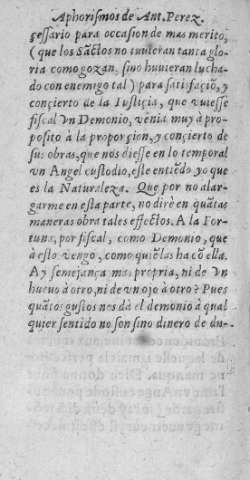 Aphorismos de Ant. Perez.
cessario para occasion de mas merito,
( que los Sãctos no tuuieran tanta glo
ria como gozan, sino huuieran lucha-
do con enemigo tal ) para satisfació, y
concierto de la Iusticia, que vuiesse
fiscal vn Demonio, venia muy à pro-
posito à la proporcion, y concierto de
sus obras, que nos diesse en lo temporal
vn Angel custodio, este entiẽdo yo que
es la Naturaleza. Que por no alar-
garme en esta parte, no dirè en quãtas
maneras obra tales effectos. A la For-
tuna, por fiscal, como Demonio, que
à esto vengo, como quiẽ las ha cõ ella.
Ay semejança mas propria, ni de vn
hueuo à otro, ni de vn ojo à otro? Pues
quãtos gustos nos dà el demonio à qual
quier sentido no son sino dinero de du-